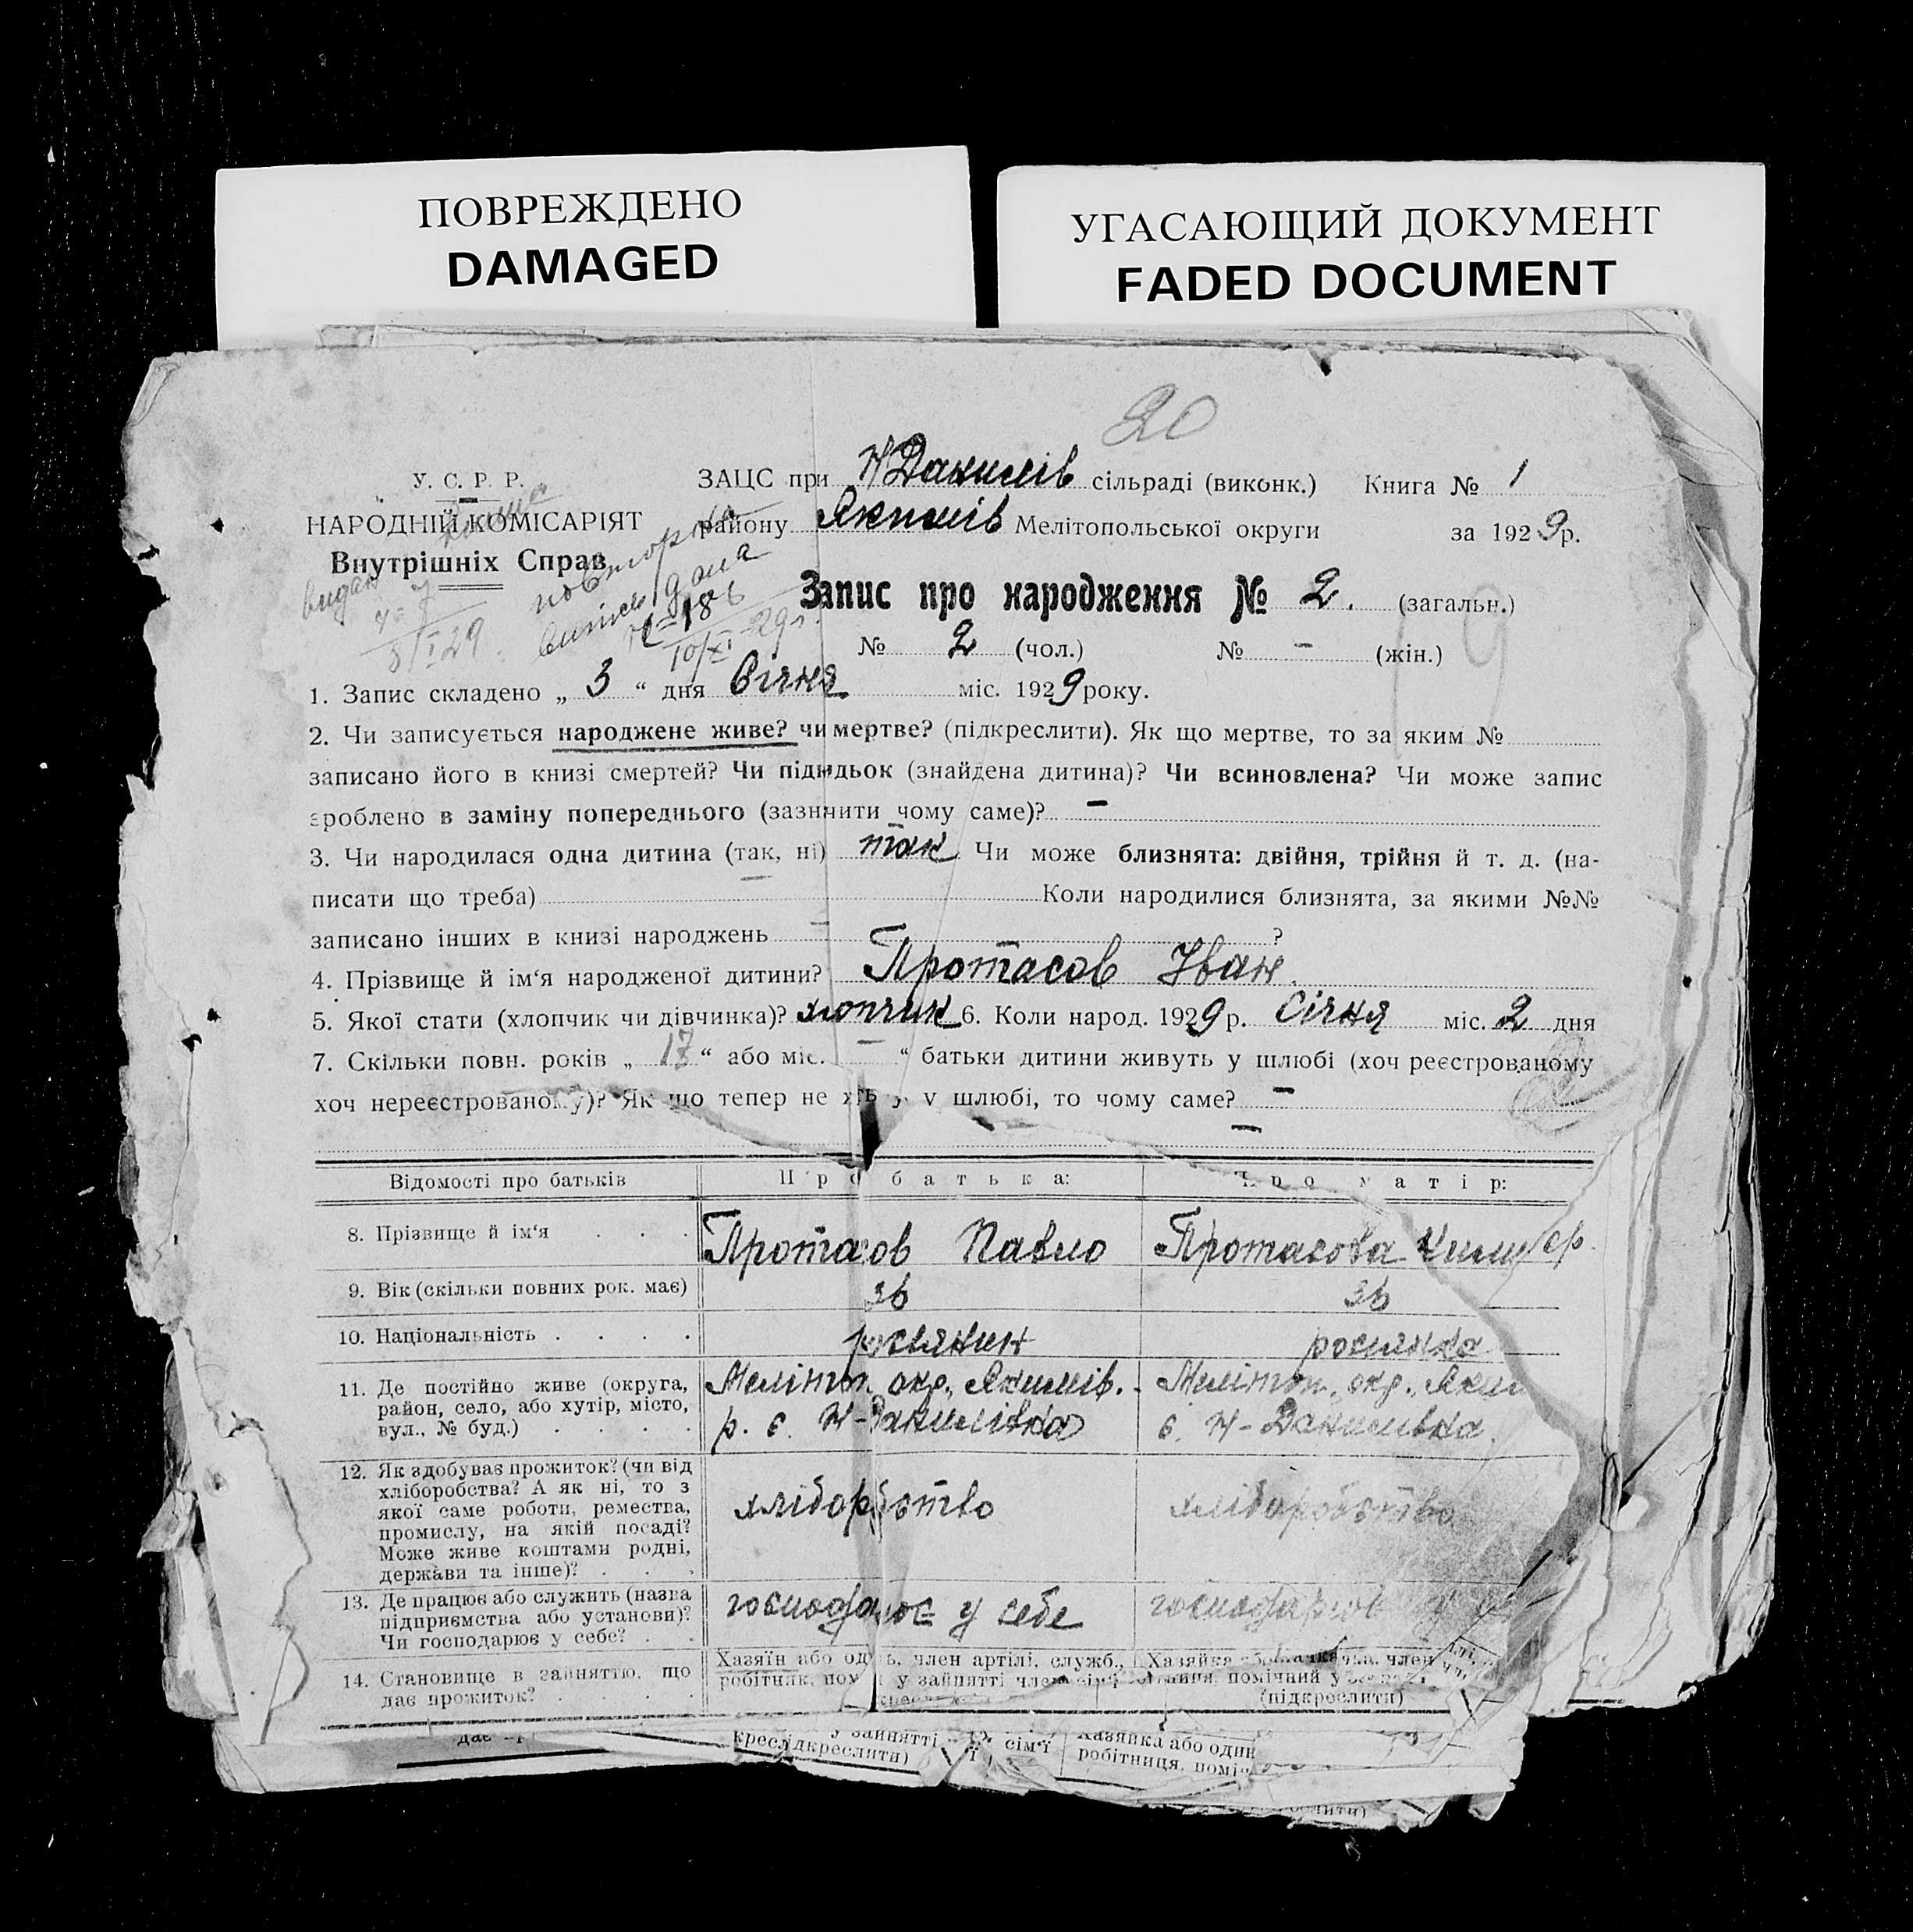 ПОВРЕЖДЕНО
DAMAGED
УГАСАЮЩИЙ ДОКУМЕНТ
FADED DOCUMENT
20
У. С. Р. Р.
НАРОДНІЙ КОМІСАРІЯТ
Внутрішніх Справ
ЗАЦС при Н Данилів сільраді (виконк.) Книга № 1
району Якимів Мелітопольської округи за 1929р.
повторна
випись дана
№ 18
10/XI-29 г.
8/I 29
Запис про народження № 2. (загальн.)
№ 2 (чол.) № – (жін.)
19
1. Запис складено „ 3 “ дня Січня міс. 1929 року.
2. Чи записується народжене живе? чи мертве? (підкреслити). Як що мертве, то за яким №
записано його в книзі смертей? Чи підкидьок (знайдена дитина)? Чи всиновлена? Чи може запис
зроблено в заміну попереднього (зазначити чому саме)? –
3. Чи народилася одна дитина (так, ні) так Чи може близнята: двійня, трійня й т. д. (на-
писати що треба) – Коли народилися близнята, за якими №№
записано інших в книзі народжень – ?
4. Прізвище й ім‘я народженої дитини? Протасов Іван.
5. Якої стати (хлопчик чи дівчинка)? хлопчик 6. Коли народ. 1929 р. Січня міс. 2 дня
7. Скільки повн. років „ 17 “ або міс. – “ батьки дитини живуть у шлюбі (хоч реєстрованому
хоч нереєстрованому)? Як що тепер не у шлюбі, то чому саме? –
–
Відомості про батьків Про батька: Про матір:
8. Прізвище й ім‘я . . . Протасов Павло Протасова
9. Вік (скільки повних рок. має) 36 36
10. Національність . . . . росіянин росіянка
11. Де постійно живе (округа, район, село, або хутір, місто, вул., № буд.) . . . .
Мелітоп. окр., Якимів. Мелітоп., окр., Яким
р. с. Н-Данилівка с. Н-Данилівка.
12. Як здобуває прожиток? (чи від
хліборобства? А як ні, то з
якої саме роботи, ремества,
промислу, на якій посаді?
Може живе коштами родні,
держави та інше)? . . .
хліборобство хліборобство
13. Де працює або служить (назва
підприємства або установи)?
Чи господарює у себе? . .
господарює у себе господарює у
14. Становище в зайняттю, що
дає прожиток? . . . .
Хазяїн або од член артілі, служб., Хазяйка член
робітник, пом у зайнятті член помічний у
(підкреслити)
у зайнятті сім‘ї Хазяйка або один
підкреслити) робітниця, помі